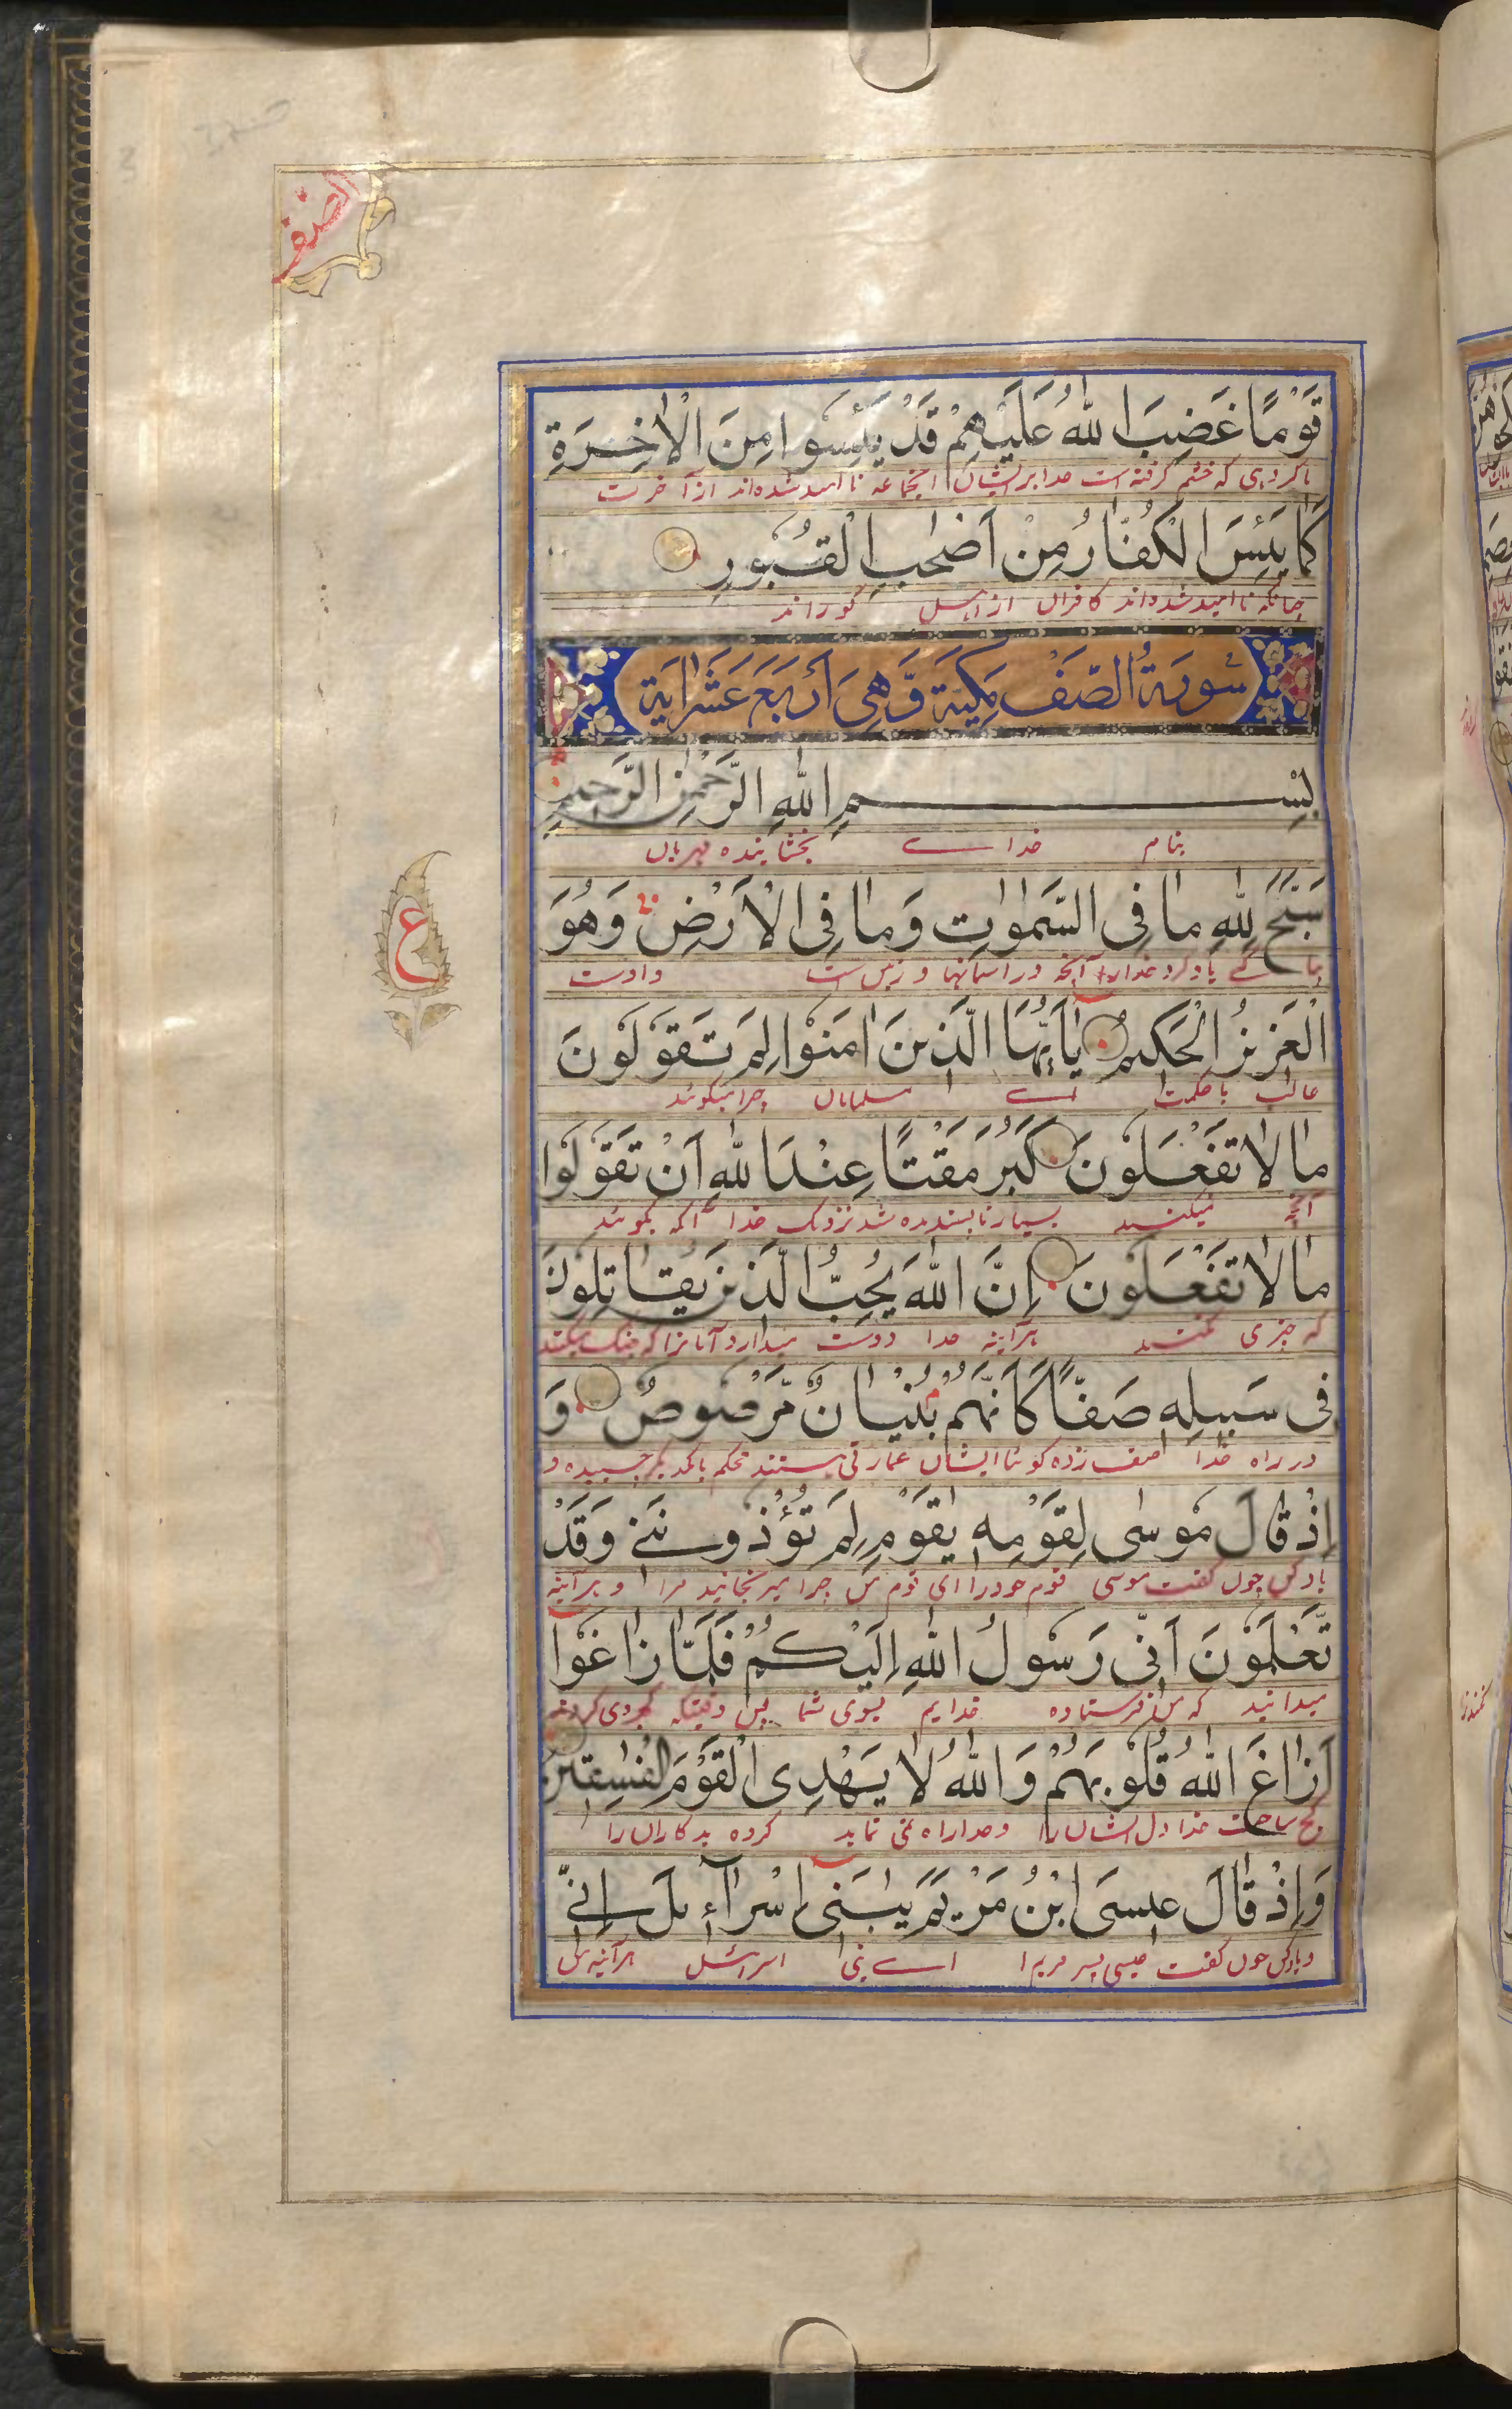 الصف
قَوْمًا غَضِبَ اللّٰهُ عَلَيْهِمْ قَدْ يَئِسُوا مِنَ الْاٰخِرَةِ
باگروهی که خشم گرفته است خدا برایشان اینجماعه ناامید شده‌اند از آخرت
كَمَا يَئِسَ الْكُفَّارُ مِنْ اَصْحٰبِ الْقُبُورِ
چنانکه ناامید شده‌اند کافران از اهل گوراند
سُورَةُ الصَّفِّ مَكِّيَّةٌ وَّهِيَ اَرْبَعَ عَشَرَ اٰيَة
بِسْمِ اللّٰهِ الرَّحْمٰنِ الرَّحِيمِ
بنام خدای بخشاینده مهربان
سَبَّحَ لِلّٰهِ مَا فِى السَّمٰوٰتِ وَمَا فِى الْاَرْضِ وَهُوَ
یاد کرد خدارا آنچه در آسمانها و زمین است واوست
الْعَزِيزُ الْحَكِيمُ يٰاَيُّهَا الَّذِينَ اٰمَنُوا لِمَ تَقُولُونَ
غالب باحکمت اے مسلمانان چرا میگوئید
مَا لَا تَفْعَلُونَ كَبُرَ مَقْتًا عِنْدَ اللّٰهِ اَنْ تَقُولُوا
آنچه نمیکنید بسیار ناپسندیده شد نزدیک خدا آنکه بگوئید
مَا لَا تَفْعَلُونَ اِنَّ اللّٰهَ يُحِبُّ الَّذِينَ يُقَاتِلُونَ
که چیزی نکنید هرآینه خدا دوست میدارد آنانرا که جنگ میکنند
فِى سَبِيلِهٖ صَفًّا كَاَنَّهُمْ بُنْيَانٌ مَّرْصُوصٌ وَ
در راه خدا صف زده گویا ایشان عمارتی هستند محکم بایکدیگر چسپیده و
اِذْ قَالَ مُوسٰى لِقَوْمِهٖ يٰقَوْمِ لِمَ تُؤْذُونَنِى وَقَدْ
یاد کن چون گفت موسی قوم خود را ای قوم من چرا میرنجانید مرا و هرآینه
تَّعْلَمُونَ اَنِّى رَسُولُ اللّٰهِ اِلَيْكُمْ فَلَمَّا زَاغُوا
میدانید که من فرستاده خدایم بسوی شما پس وقتیکه کجروی کردند
اَزَاغَ اللّٰهُ قُلُوبَهُمْ وَاللّٰهُ لَا يَهْدِى الْقَوْمَ الْفٰسِقِينَ
کج ساخت خدا دل ایشان را و خدا راه نمی نماید گروه بدکاران را
وَاِذْ قَالَ عِيسَى ابْنُ مَرْيَمَ يٰبَنِى اِسْرَآءِيلَ اِنِّى
و یاد کن چون گفت عیسی پسر مریم اے بنی اسرائیل هرآینه من
ع